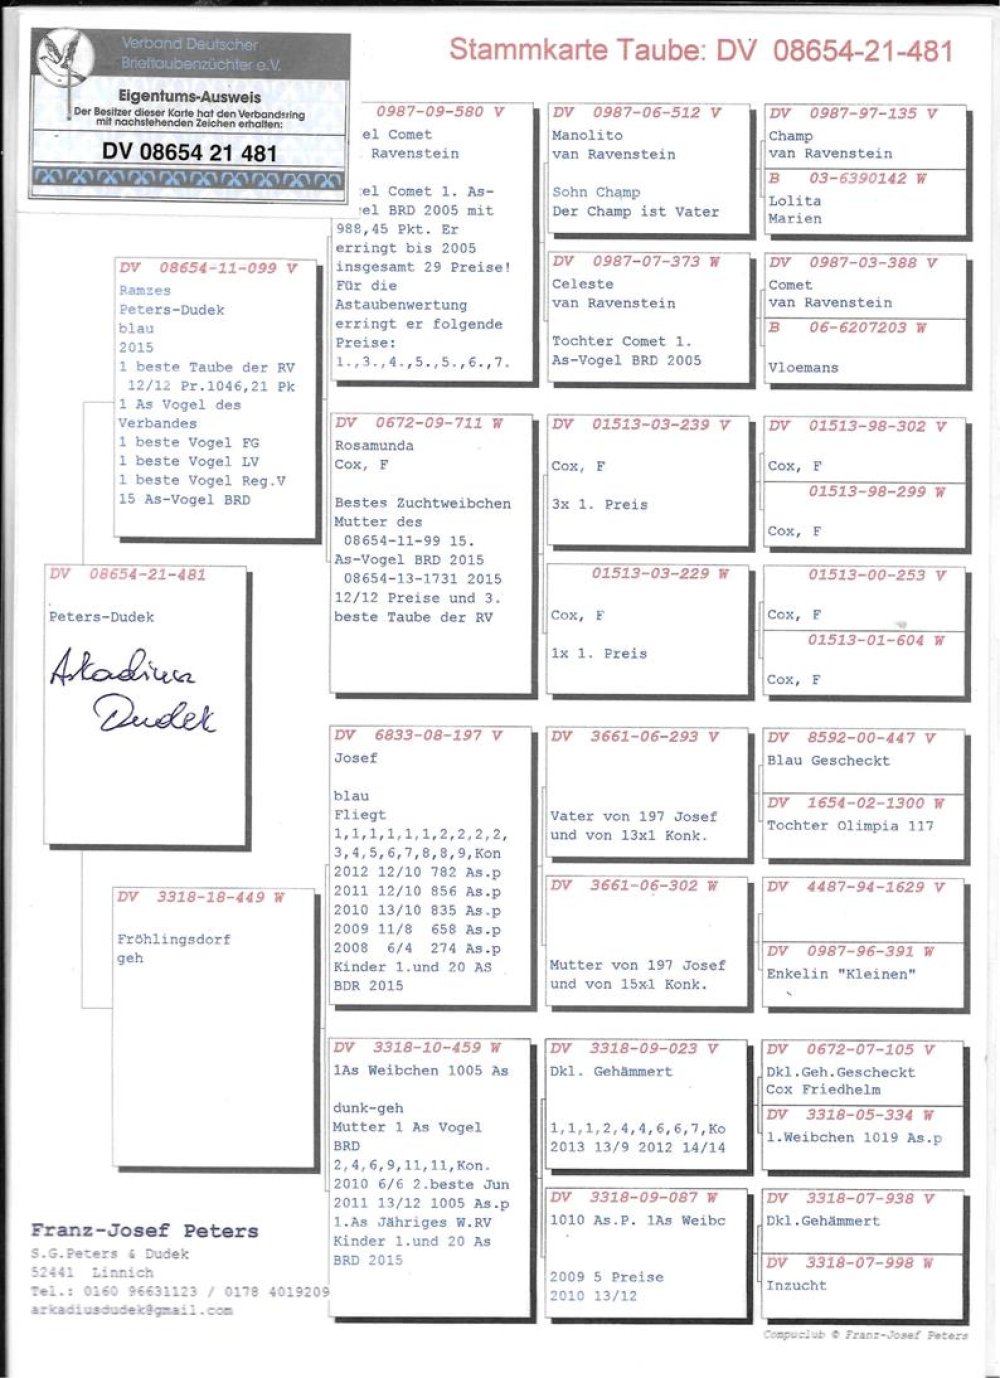 Verband Deutscher
Brieftaubenzüchter e.V.
Eigentums-Ausweis
Der Besitzer dieser Karte hat den Verbandsring
mit nachstehenden Zeichen erhalten:
DV 08654 21 481
Stammkarte Taube: DV 08654-21-481
DV 08654-21-481
Peters-Dudek
Arkadiusz
Dudek
DV 08654-11-099 V
Ramzes
Peters-Dudek
blau
2015
1 beste Taube der RV
12/12 Pr.1046,21 Pk
1 As Vogel des
Verbandes
1 beste Vogel FG
1 beste Vogel LV
1 beste Vogel Reg.V
15 As-Vogel BRD
DV 3318-18-449 W
Fröhlingsdorf
geh
0987-09-580 V
el Comet
Ravenstein
el Comet 1. As-
el BRD 2005 mit
988,45 Pkt. Er
erringt bis 2005
insgesamt 29 Preise!
Für die
Astaubenwertung
erringt er folgende
Preise:
1.,3.,4.,5.,5.,6.,7.
DV 0672-09-711 W
Rosamunda
Cox, F
Bestes Zuchtweibchen
Mutter des
08654-11-99 15.
As-Vogel BRD 2015
08654-13-1731 2015
12/12 Preise und 3.
beste Taube der RV
DV 6833-08-197 V
Josef
blau
Fliegt
1,1,1,1,1,1,2,2,2,2,
3,4,5,6,7,8,8,9,Kon
2012 12/10 782 As.p
2011 12/10 856 As.p
2010 13/10 835 As.p
2009 11/8 658 As.p
2008 6/4 274 As.p
Kinder 1.und 20 AS
BDR 2015
DV 3318-10-459 W
1As Weibchen 1005 As
dunk-geh
Mutter 1 As Vogel
BRD
2,4,6,9,11,11,Kon.
2010 6/6 2.beste Jun
2011 13/12 1005 As.p
1.As Jähriges W.RV
Kinder 1.und 20 As
BRD 2015
DV 0987-06-512 V
Manolito
van Ravenstein
Sohn Champ
Der Champ ist Vater
DV 0987-07-373 W
Celeste
van Ravenstein
Tochter Comet 1.
As-Vogel BRD 2005
DV 01513-03-239 V
Cox, F
3x 1. Preis
01513-03-229 W
Cox, F
1x 1. Preis
DV 3661-06-293 V
Vater von 197 Josef
und von 13x1 Konk.
DV 3661-06-302 W
Mutter von 197 Josef
und von 15x1 Konk.
DV 3318-09-023 V
Dkl. Gehämmert
1,1,1,2,4,4,6,6,7,Ko
2013 13/9 2012 14/14
DV 3318-09-087 W
1010 As.P. 1As Weibc
2009 5 Preise
2010 13/12
DV 0987-97-135 V
Champ
van Ravenstein
B 03-6390142 W
Lolita
Marien
DV 0987-03-388 V
Comet
van Ravenstein
B 06-6207203 W
Vloemans
DV 01513-98-302 V
Cox, F
01513-98-299 W
Cox, F
01513-00-253 V
Cox, F
01513-01-604 W
Cox, F
DV 8592-00-447 V
Blau Gescheckt
DV 1654-02-1300 W
Tochter Olimpia 117
DV 4487-94-1629 V
DV 0987-96-391 W
Enkelin "Kleinen"
DV 0672-07-105 V
Dkl.Geh.Gescheckt
Cox Friedhelm
DV 3318-05-334 W
1.Weibchen 1019 As.p
DV 3318-07-938 V
Dkl.Gehämmert
DV 3318-07-998 W
Inzucht
Franz-Josef Peters
S.G.Peters & Dudek
52441 Linnich
Tel.: 0160 96631123 / 0178 4019209
arkadiusdudek@gmail.com
Compuclub © Franz-Josef Peters